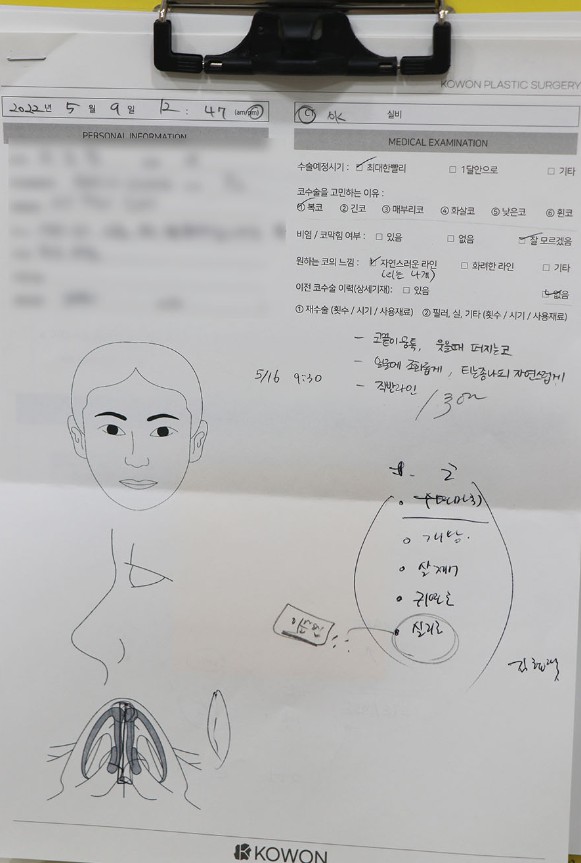 KOWON PLASTIC SURGERY
2022년 5월 9일 12 : 47 (am/pm)
C OK 실비
PERSONAL INFORMATION
MEDICAL EXAMINATION
수술예정시기 : □ 최대한빨리 □ 1달안으로 □ 기타
코수술을 고민하는 이유 :
① 복코 ② 긴코 ③ 매부리코 ④ 화살코 ⑤ 낮은코 ⑥ 휜코
비염 / 코막힘 여부 : □ 있음 □ 없음 □ 잘 모르겠음
원하는 코의 느낌 : □ 자연스러운 라인 □ 화려한 라인 □ 기타
(티는 나게)
이전 코수술 이력(상세기재) : □ 있음 □ 없음
① 재수술 (횟수 / 시기 / 사용재료) ② 필러, 실, 기타 (횟수 / 시기 / 사용재료)
- 코끝이 뭉툭, 웃을때 퍼지는코
- 얼굴에 조화롭게, 티는좀나되 자연스럽게
- 직반라인
5/16 9:30
코
개방.
귀연골
실리콘
KOWON